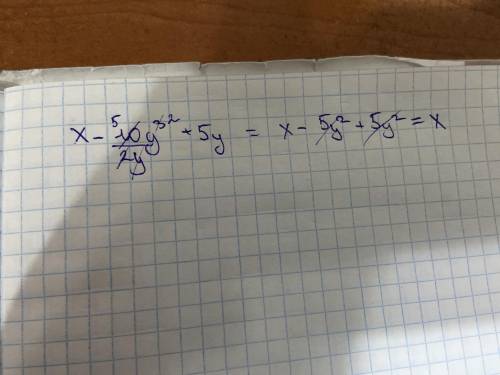 x - \frac{\overset{5}{\cancel{10}}y^{\cancel{3}2}}{\cancel{2y}} + 5y = x - \cancel{5y^2} + \cancel{5y^2} = x